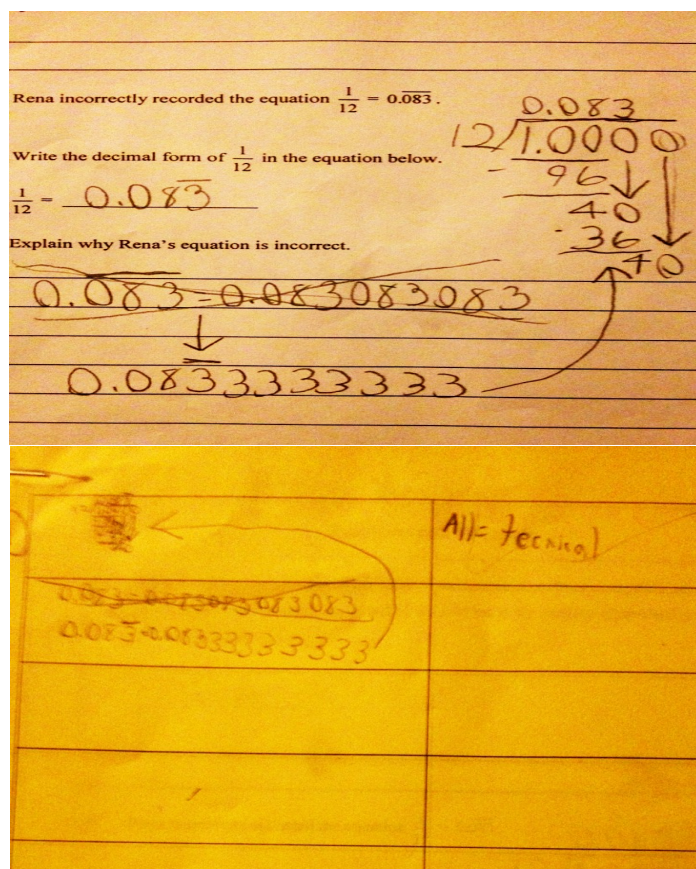 Rena incorrectly recorded the equation 1/12 = 0.0̅8̅3̅.
Write the decimal form of 1/12 in the equation below.
1/12 = 0.083̅
Explain why Rena's equation is incorrect.
0.083
12 1.0000
- 96
40
- 36
40
0.0̅8̅3̅ = 0.083083083
0.083̅3333333
All = tecnical
0.083=0.083083083083
0.083̅=0.0833333333